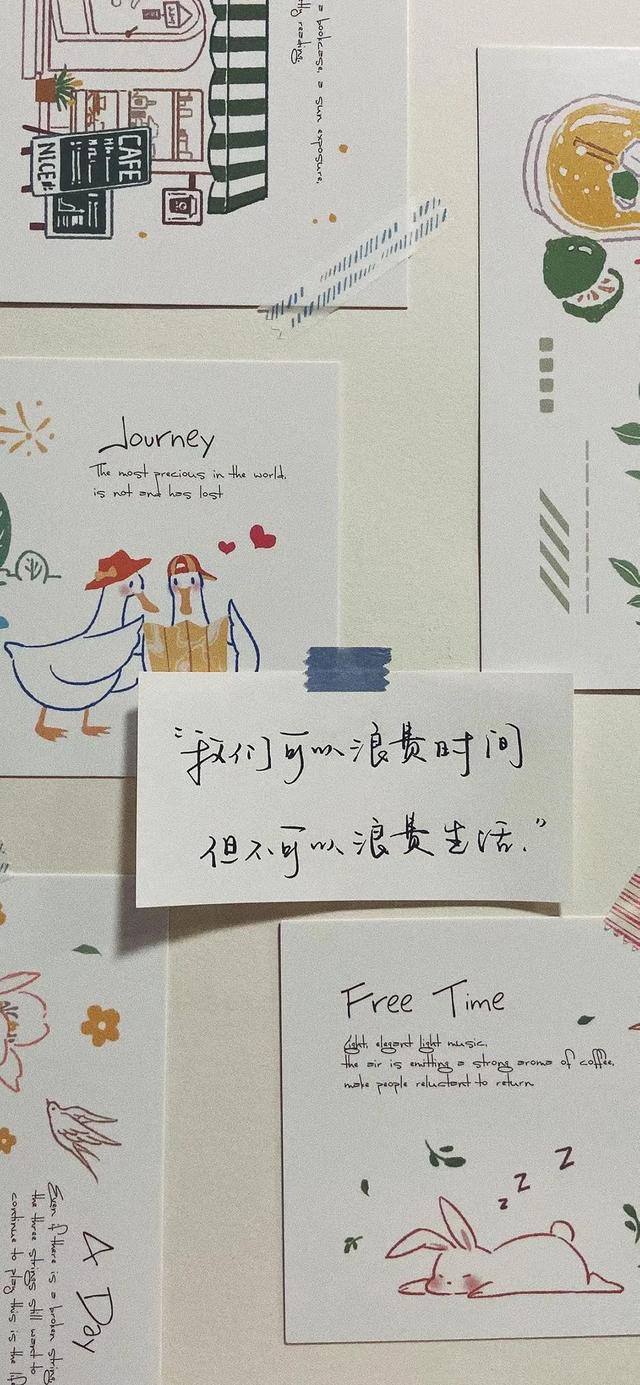 a bookcase, a sun exposure,
reading.
CAFE
NICE
Journey
The most precious in the world,
is not and has lost
“我们可以浪费时间
但不可以浪费生活.”
Free Time
Light, elegant light music,
the air is emitting a strong aroma of coffee,
make people reluctant to return
z z z
A Day
Even if there is a broken string,
the three strings still want to
continue to play this is the